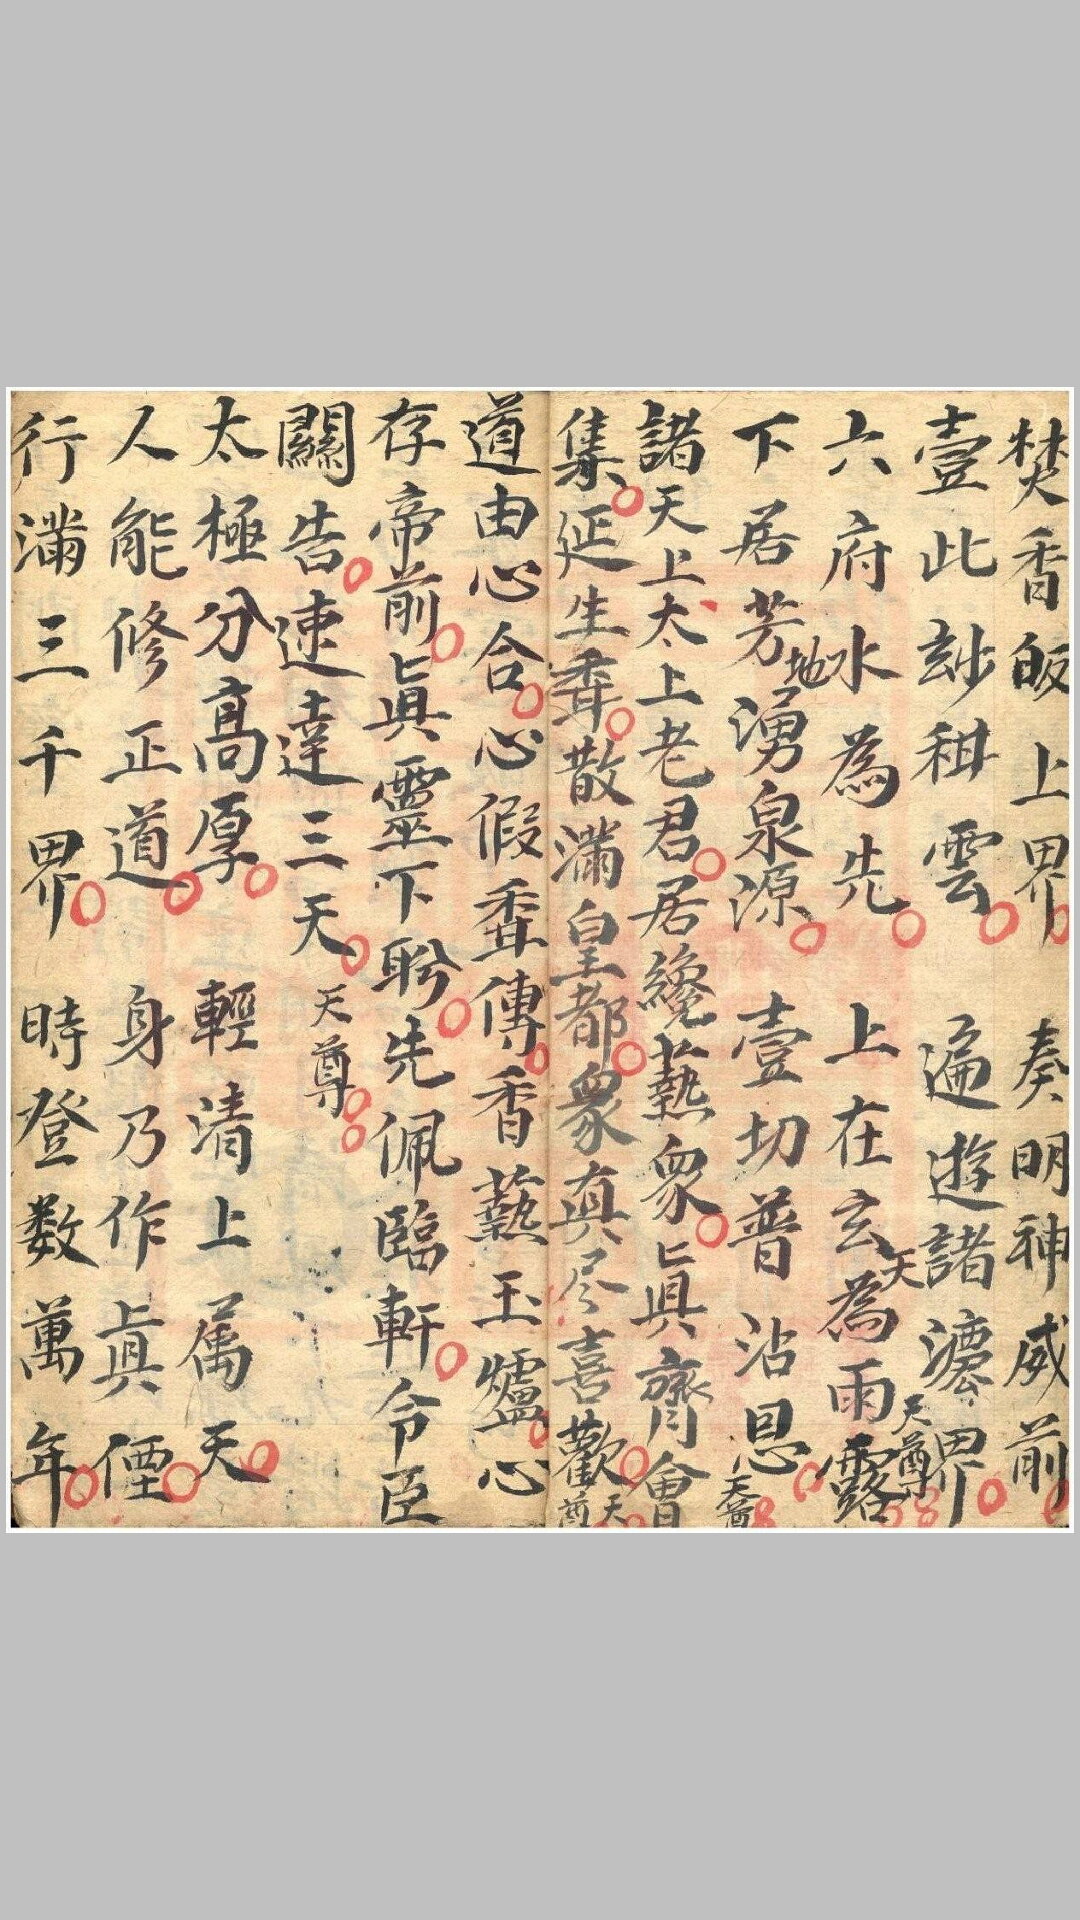 焚香皈上界奏明神威前
壹此玅秇雲遍遊諸灋界天尊
六府水為先上在玄天為雨露
下居芳地湧泉源壹切普沾恩天尊
諸天上太上老君居纔爇衆眞齊會
集延生香散滿皇都衆真尽喜歡天尊
道由心合心假香傳香爇玉爐心
存帝前眞靈下盼先佩臨軒令臣
關告速達三天天尊
太極分高厚輕清上属天
人能修正道身乃作眞僊
行滿三千界時登数萬年